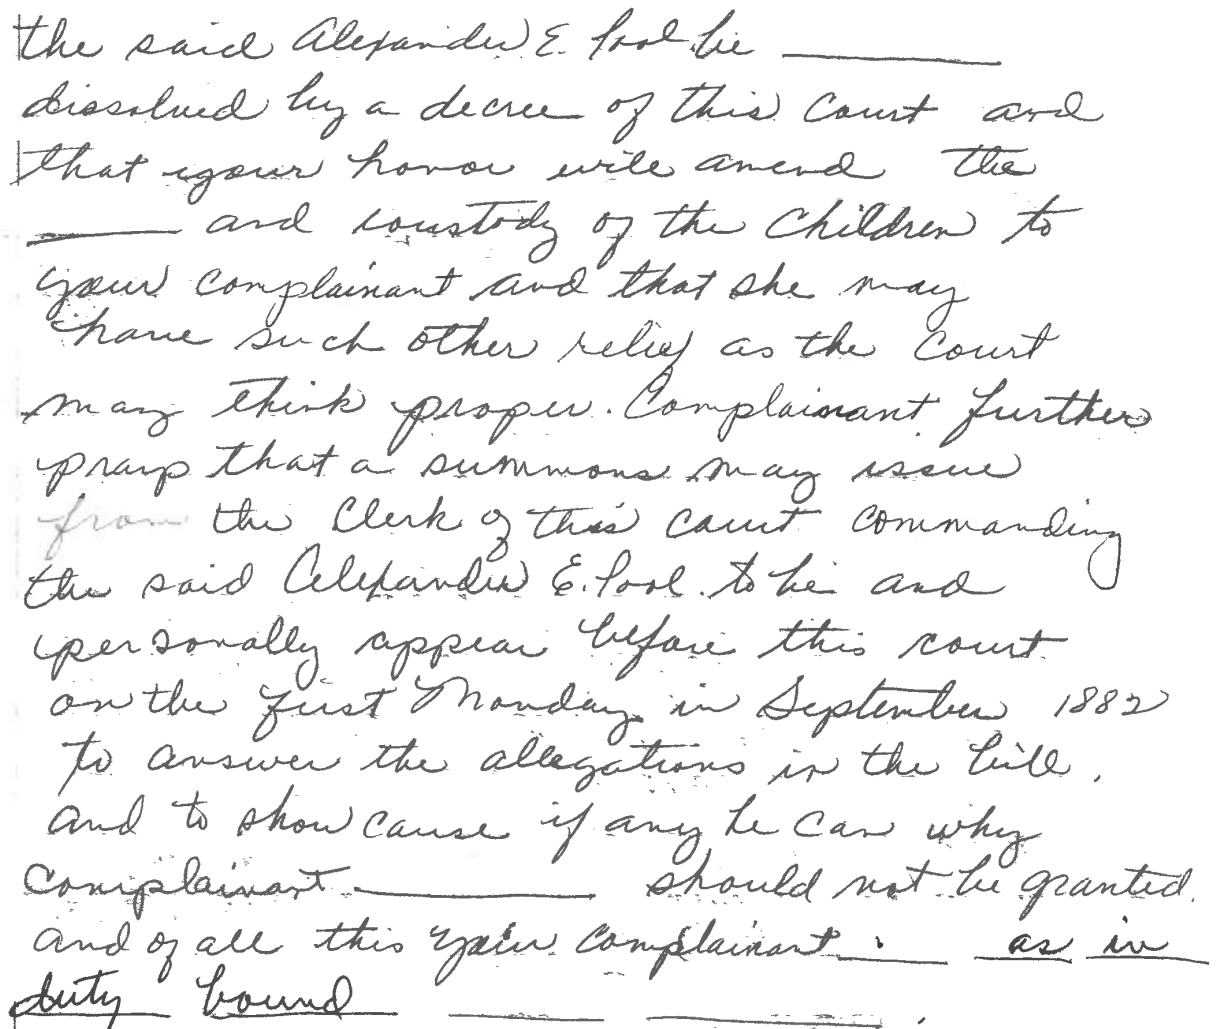 the said Alexander E. Pool be ________
dissolved by a decree of this Court and
that your honor will amend the
________ and custody of the Children to
your complainant and that she may
have such other relief as the Court
may think proper. Complainant further
prays that a summons may issue
from the Clerk of this court commanding
the said Alexander E. Pool to be and
personally appear before this court
on the first Monday in September 1882
to answer the allegations in the bill,
and to show cause if any he can why
complainant ________ should not be granted.
and of all this your complainant ____ as in
duty bound ____ ____.